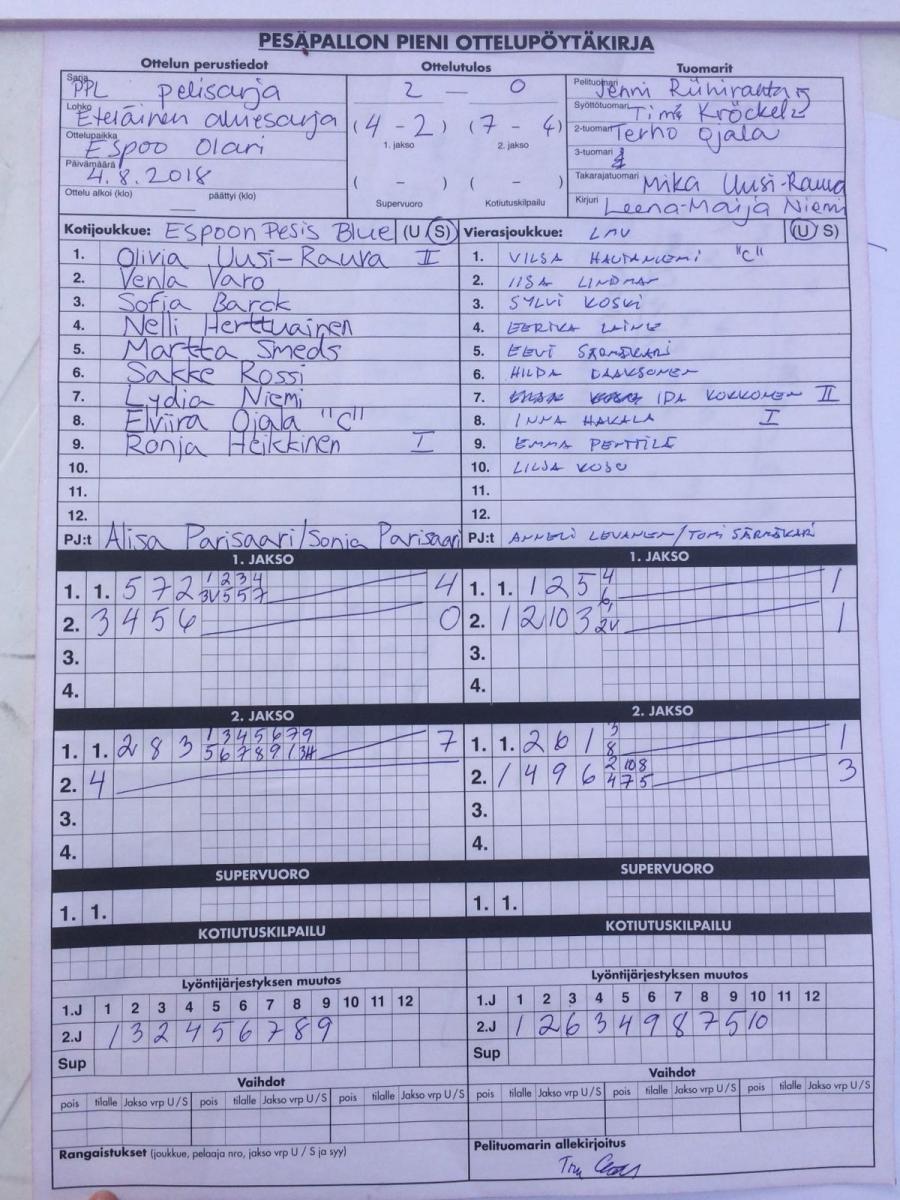 PESÄPALLON PIENI OTTELUPÖYTÄKIRJA
Ottelun perustiedot Ottelutulos Tuomarit
Sarja PPL pelisarja 2 — 0 Pelituomari Jenni
Lohko Eteläinen aluesarja (4 - 2) (7 - 4) Syöttötuomari
1. jakso 2. jakso
Ottelupaikka Espoo Olari 2-tuomari Terho Ojala
3-tuomari
Päivämäärä 4.8.2018 ( - ) ( - ) Takarajatuomari Mika Uusi-Rauva
Ottelu alkoi (klo) päättyi (klo) Supervuoro Kotiutuskilpailu Kirjuri Leena-Maija Niemi
Kotijoukkue: Espoon Pesis Blue (U S) Vierasjoukkue: (U S)
1. Olivia Uusi-Rauva II 1. VILSA HAUTANIEMI "C"
2. Venla Varo 2. IISA LINDMAN
3. Sofia Barck 3. SYLVI KOSKI
4. Nelli Herttuainen 4. EERIKA LAINE
5. Martta Smeds 5. EEVI SÄRMÄKARI
6. Sakke Rossi 6. HILDA
7. Lydia Niemi 7. IDA KOKKONEN II
8. Elviira Ojala "C" 8. INNA HAKALA I
9. Ronja Heikkinen I 9. EMMA PENTTILÄ
10. 10. LILJA
11. 11.
12. 12.
PJ:t Alisa Parisaari/Sonja Parisaari PJ:t ANNELI LEVANEN/TOMI SÄRMÄKARI
1. JAKSO 1. JAKSO
1 2 3 4 4
1. 1. 5 7 2 3V 5 5 7 4 1. 1. 1 2 5 6 1
2. 3 4 5 6 0 2. 1 2 10 3 2V 1
3. 3.
4. 4.
2. JAKSO 2. JAKSO
1 3 4 5 6 7 9 3
1. 1. 2 8 3 5 6 7 8 9 1 7 1. 1. 2 6 1 8 1
2 10 8
2. 4 2. 1 4 9 6 4 7 5 3
3. 3.
4. 4.
SUPERVUORO SUPERVUORO
1. 1. 1. 1.
KOTIUTUSKILPAILU KOTIUTUSKILPAILU
Lyöntijärjestyksen muutos Lyöntijärjestyksen muutos
1.J 1 2 3 4 5 6 7 8 9 10 11 12 1.J 1 2 3 4 5 6 7 8 9 10 11 12
2.J 1 3 2 4 5 6 7 8 9 2.J 1 2 6 3 4 9 8 7 5 10
Sup Sup
Vaihdot Vaihdot
pois tilalle Jakso vrp U / S pois tilalle Jakso vrp U / S pois tilalle Jakso vrp U / S pois tilalle Jakso vrp U / S pois tilalle Jakso vrp U / S pois tilalle Jakso vrp U / S
Rangaistukset (joukkue, pelaaja nro, jakso vrp U / S ja syy) Pelituomarin allekirjoitus